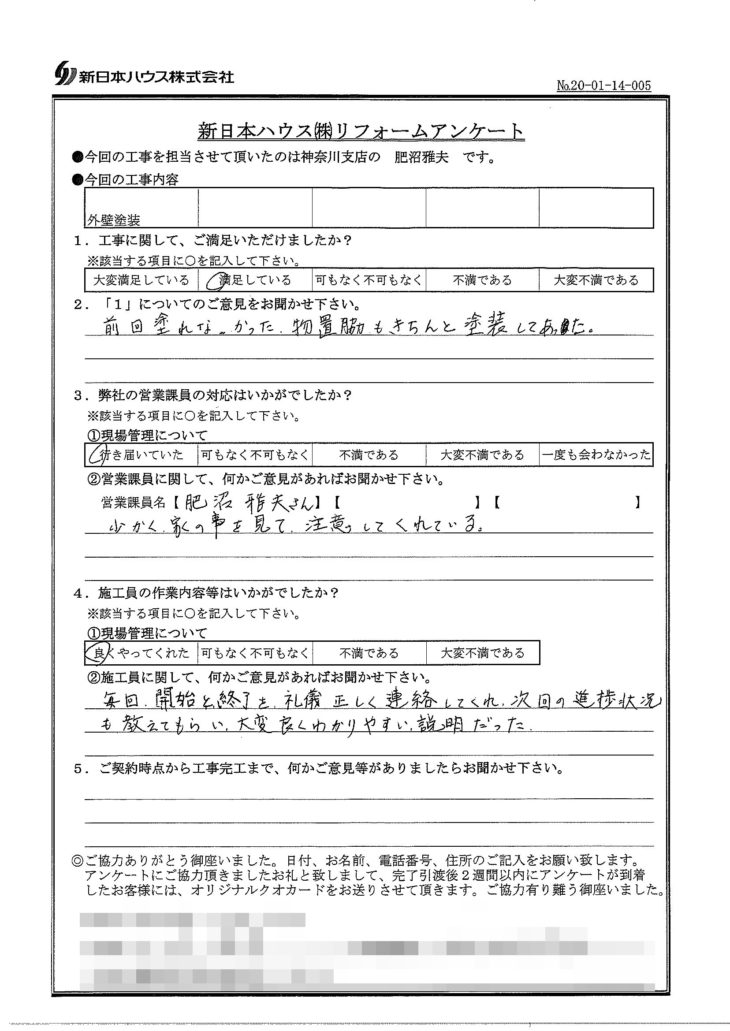 新日本ハウス株式会社
№20-01-14-005
新日本ハウス㈱リフォームアンケート
●今回の工事を担当させて頂いたのは神奈川支店の 肥沼雅夫 です。
●今回の工事内容
外壁塗装
1．工事に関して、ご満足いただけましたか？
※該当する項目に○を記入して下さい。
大変満足している 満足している 可もなく不可もなく 不満である 大変不満である
2．「1」についてのご意見をお聞かせ下さい。
前回塗れなかった、物置脇もきちんと塗装してあった。
3．弊社の営業課員の対応はいかがでしたか？
※該当する項目に○を記入して下さい。
①現場管理について
行き届いていた 可もなく不可もなく 不満である 大変不満である 一度も会わなかった
②営業課員に関して、何かご意見があればお聞かせ下さい。
営業課員名【肥沼 雅夫さん】【 】【 】
少かく、家の事を見て、注意してくれている。
4．施工員の作業内容等はいかがでしたか？
※該当する項目に○を記入して下さい。
①現場管理について
良くやってくれた 可もなく不可もなく 不満である 大変不満である
②施工員に関して、何かご意見があればお聞かせ下さい。
毎回、開始と終了を、礼儀正しく連絡してくれ、次回の進捗状況
も教えてもらい、大変良くわかりやすい、説明だった。
5．ご契約時点から工事完工まで、何かご意見等がありましたらお聞かせ下さい。
◎ご協力ありがとう御座いました。日付、お名前、電話番号、住所のご記入をお願い致します。
アンケートにご協力頂きましたお礼と致しまして、完了引渡後2週間以内にアンケートが到着
したお客様には、オリジナルクオカードをお送りさせて頂きます。ご協力有り難う御座いました。